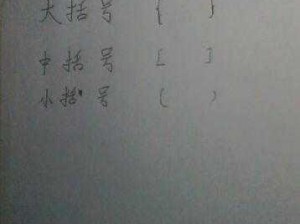 大括号 { }
中括号 [ ]
小括号 ( )